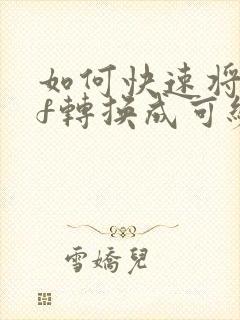 如何快速將
f轉換成可
雪嬌兒